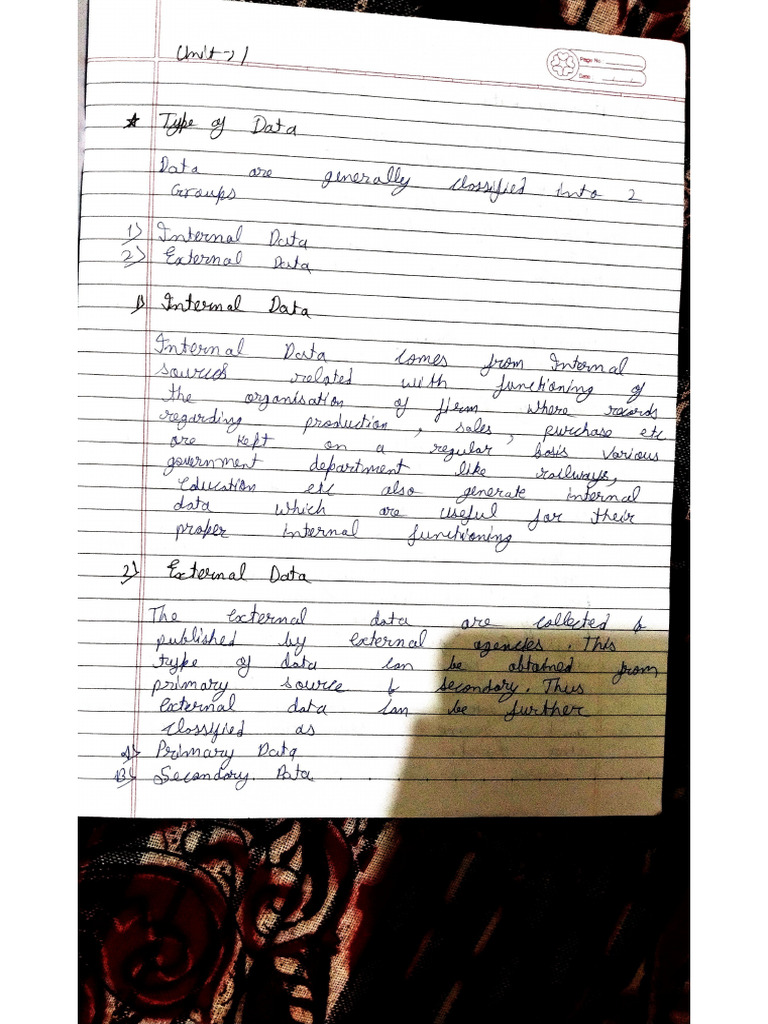 Unit → 1
Page No.
Date
* Type of Data
Data are generally classified into 2
Groups
1) Internal Data
2) External Data
1) Internal Data
Internal Data comes from Internal
sources related with functioning of
the organisation of firm where records
regarding production, sales, purchase etc
are kept on a regular basis various
government department like railways,
education etc also generate internal
data which are useful for their
proper internal functioning
2) External Data
The external data are collected &
published by external agencies. This
type of data can be obtained from
primary source & secondary. Thus
external data can be further
classified as
A) Primary Data
B) Secondary Data